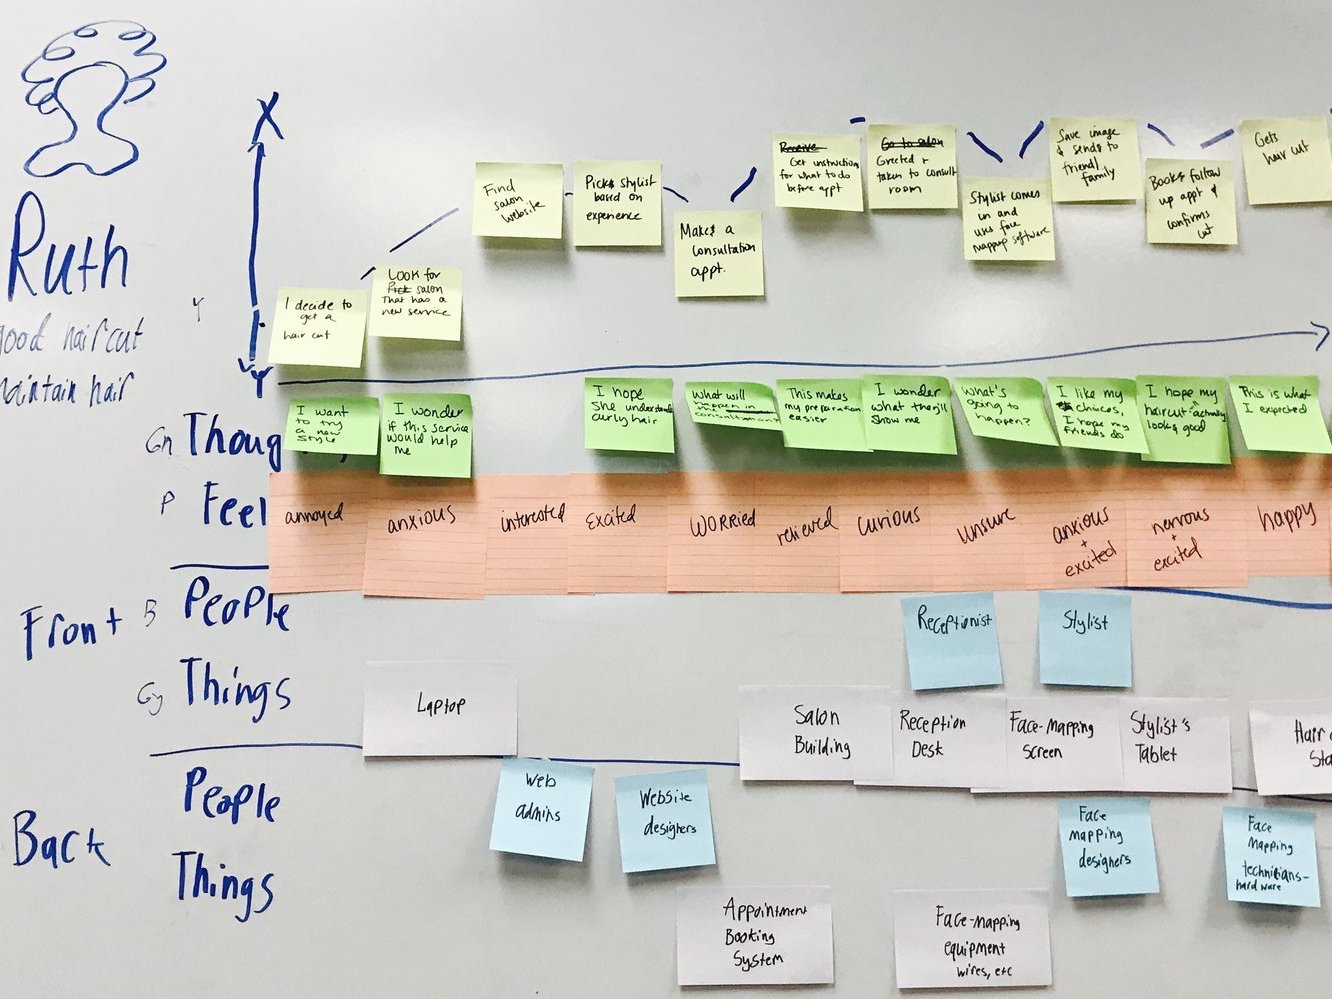 X
Ruth
good haircut
maintain hair
Y
Y
I decide to
get a
hair cut
Look for
Pick salon
That has a
new service
Find
salon
website
Picks stylist
based on
experience
Makes a
consultation
appt.
Receive
Get instructions
for what to do
before appt
Go to salon
Greeted +
taken to consult
room
Stylist comes
in and
uses face
mapping software
Save image
& sends to
friend/
family
Books follow
up appt &
confirms
cut
Gets
hair cut
Gn Thoug
I want
to try
a new
style
I wonder
if this service
would help
me
I hope
She understands
curly hair
What will
happen in
consultation?
This makes
my preparation
easier
I wonder
what they'll
show me
What's
going to
happen?
I like my
choices,
I hope my
friends do
I hope my
haircut actually
looks good
This is what
I expected
P Feel
annoyed
anxious
interested
Excited
WORRIED
relieved
curious
unsure
anxious
+
excited
nervous
+
excited
happy
Front
B People
Receptionist
Stylist
Gy Things
Laptop
Salon
Building
Reception
Desk
Face-Mapping
Screen
Stylist's
Tablet
Hair
Sta
Back
People
Web
admins
Website
designers
Face
mapping
designers
Face
Mapping
technicians-
hardware
Things
Appointment
Booking
System
Face-mapping
equipment
wires, etc